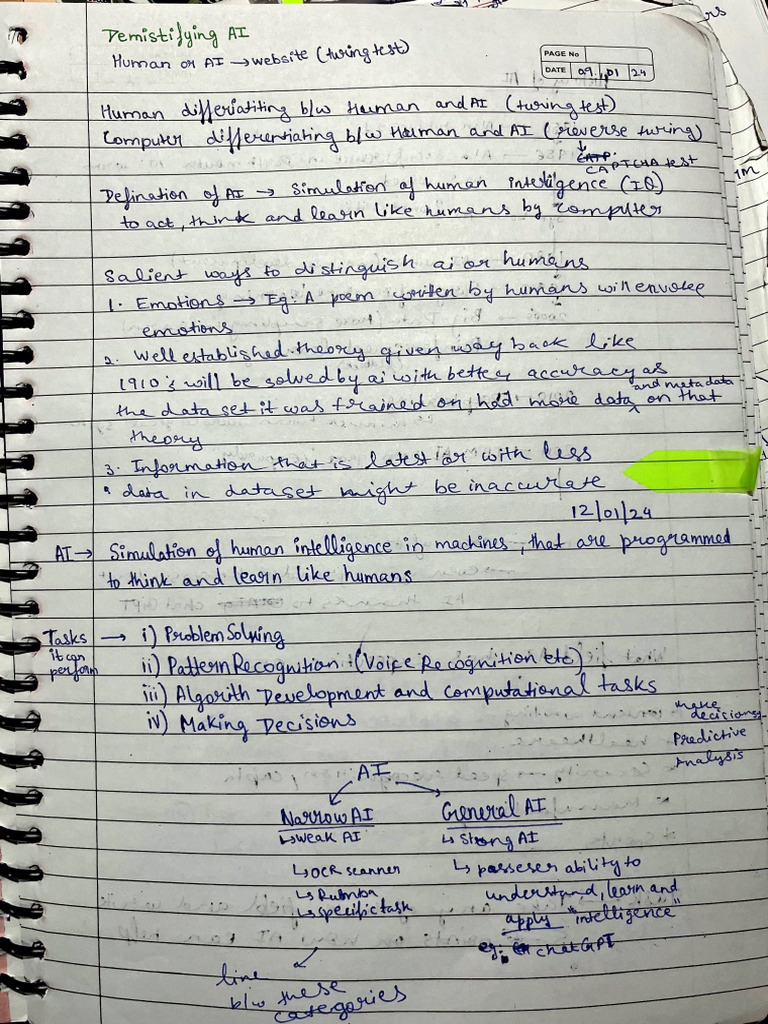 Demistifying AI
Human or AI → website (turing test)
PAGE No
DATE 09 / 01 / 24
Human differiatiting b/w Human and AI (turing test)
Computer differentiating b/w Human and AI (reverse turing)
↓
CAPTCHA test
Defination of AI → Simulation of human intelligence (IQ)
to act, think and learn like humans by computer
Salient ways to distinguish ai or humans
1. Emotions → Eg: A poem written by humans will envoke
emotions
2. Well established theory given way back like
1910's will be solved by ai with better accuracy as
the data set it was trained on, hold more data and metadata on that
theory
3. Information that is latest or with less
data in dataset might be inaccurate
12/01/24
AI → Simulation of human intelligence in machines, that are programmed
to think and learn like humans
Tasks it can perform → i) Problem Solving
ii) Pattern Recognition (Voice Recognition etc)
iii) Algorith Development and computational tasks
iv) Making Decisions
make
decisions
Predictive
Analysis
AI
Narrow AI General AI
↳ weak AI ↳ Strong AI
↳ OCR scanner ↳ posseser ability to
↳ Rumba understand, learn and
↳ specific task apply "intelligence"
eg: chatGPT
line
b/w these
categories